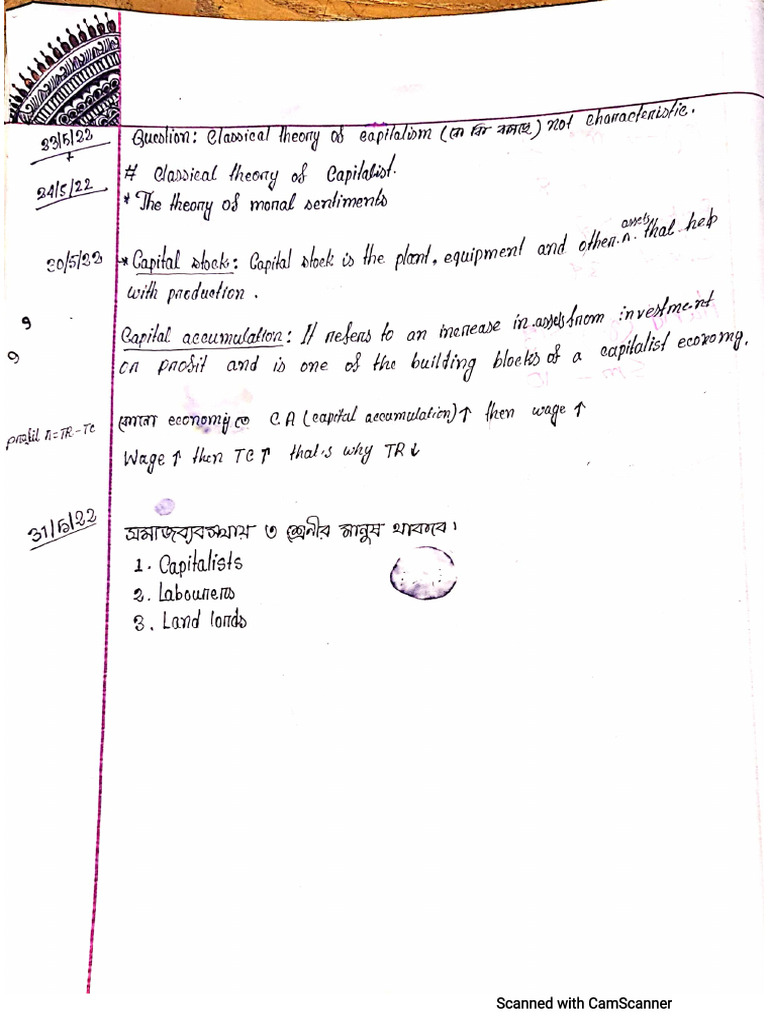 23/5/22
+
24/5/22
Question: Classical theory of capitalism (কে কি বলছে) not characteristic.
# Classical theory of Capitalist.
* The theory of moral sentiments
30/5/22 → * Capital stock: Capital stock is the plant, equipment and other assets that help
with production.
Capital accumulation: It refers to an increase in assets from investment
or profit and is one of the building blocks of a capitalist economy.
profit π=TR-TC
কোনো economy তে C.A (capital accumulation)↑ then wage ↑
Wage ↑ then TC↑ that's why TR↓
31/5/22
সমাজব্যবস্থায় ৩ শ্রেনীর মানুষ থাকবে।
1. Capitalists
2. Labourers
3. Land lords
Scanned with CamScanner